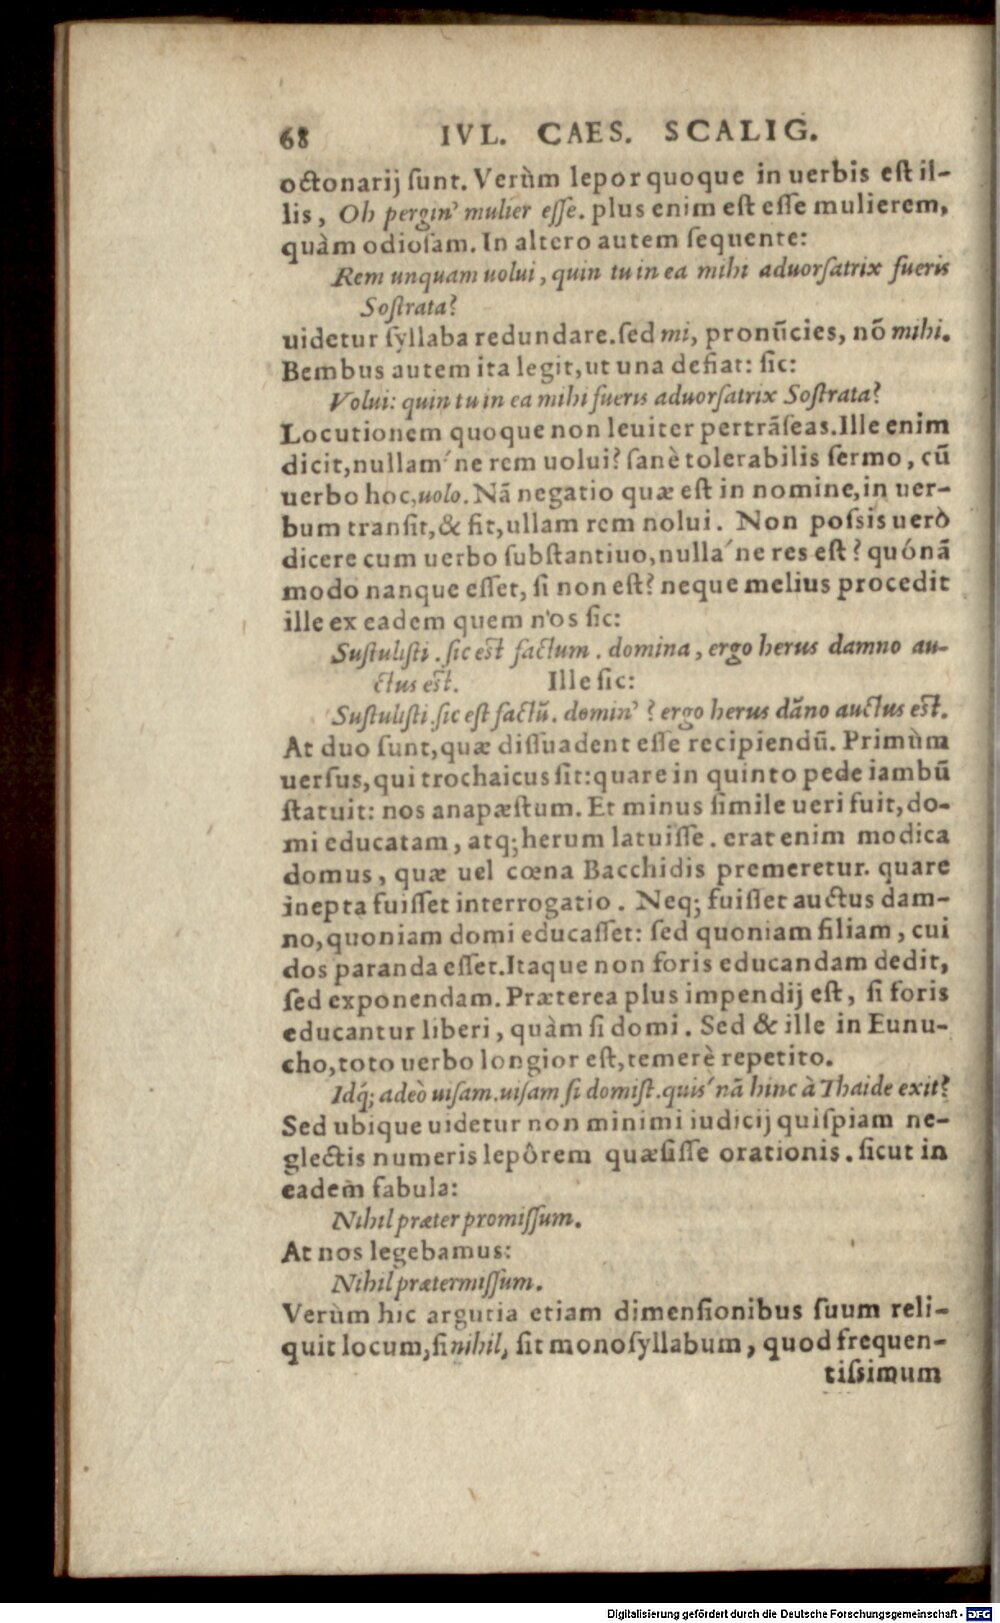 68 IVL. CAES. SCALIG.
octonarij ſunt. Verùm lepor quoque in uerbis eſt il-
lis, Oh pergin’ mulier eſſe. plus enim eſt eſſe mulierem,
quàm odioſam. In altero autem ſequente:
Rem unquam uolui, quin tu in ea mihi aduorſatrix fueris
Soſtrata?
uidetur ſyllaba redundare. ſed mi, pronũcies, nõ mihi.
Bembus autem ita legit, ut una defiat: ſic:
Volui: quin tu in ea mihi fueris aduorſatrix Soſtrata?
Locutionem quoque non leuiter pertrãſeas. Ille enim
dicit, nullam´ne rem uolui? ſanè tolerabilis ſermo, cũ
uerbo hoc, uolo. Nã negatio quæ eſt in nomine, in uer-
bum tranſit, & fit, ullam rem nolui. Non poſsis uerò
dicere cum uerbo ſubſtantiuo, nulla´ne res eſt? quónã
modo nanque eſſet, ſi non eſt? neque melius procedit
ille ex eadem quem n'os ſic:
Suſtuliſti. ſic eſt factum. domina, ergo herus damno au-
ctus eſt. Ille ſic:
Suſtuliſti. ſic eſt factũ. domin’? ergo herus dãno auctus eſt.
At duo ſunt, quæ diſſuadent eſſe recipiendũ. Primùm
uerſus, qui trochaicus ſit: quare in quinto pede iambũ
ſtatuit: nos anapæſtum. Et minus ſimile ueri fuit, do-
mi educatam, atq; herum latuiſſe. erat enim modica
domus, quæ uel cœna Bacchidis premeretur. quare
inepta fuiſſet interrogatio. Neq; fuiſſet auctus dam-
no, quoniam domi educaſſet: ſed quoniam filiam, cui
dos paranda eſſet. Itaque non foris educandam dedit,
ſed exponendam. Præterea plus impendij eſt, ſi foris
educantur liberi, quàm ſi domi. Sed & ille in Eunu-
cho, toto uerbo longior eſt, temerè repetito.
Idq́; adeò uiſam. uiſam ſi domiſt. quis´nã hinc à Thaide exit?
Sed ubique uidetur non minimi iudicij quiſpiam ne-
glectis numeris lepôrem quæſiſſe orationis. ſicut in
eadem fabula:
Nihil præter promiſſum.
At nos legebamus:
Nihil prætermiſſum.
Verùm hic argutia etiam dimenſionibus ſuum reli-
quit locum, ſi nihil, ſit monoſyllabum, quod frequen-
tiſsimum
Digitalisierung gefördert durch die Deutsche Forschungsgemeinschaft - DFG